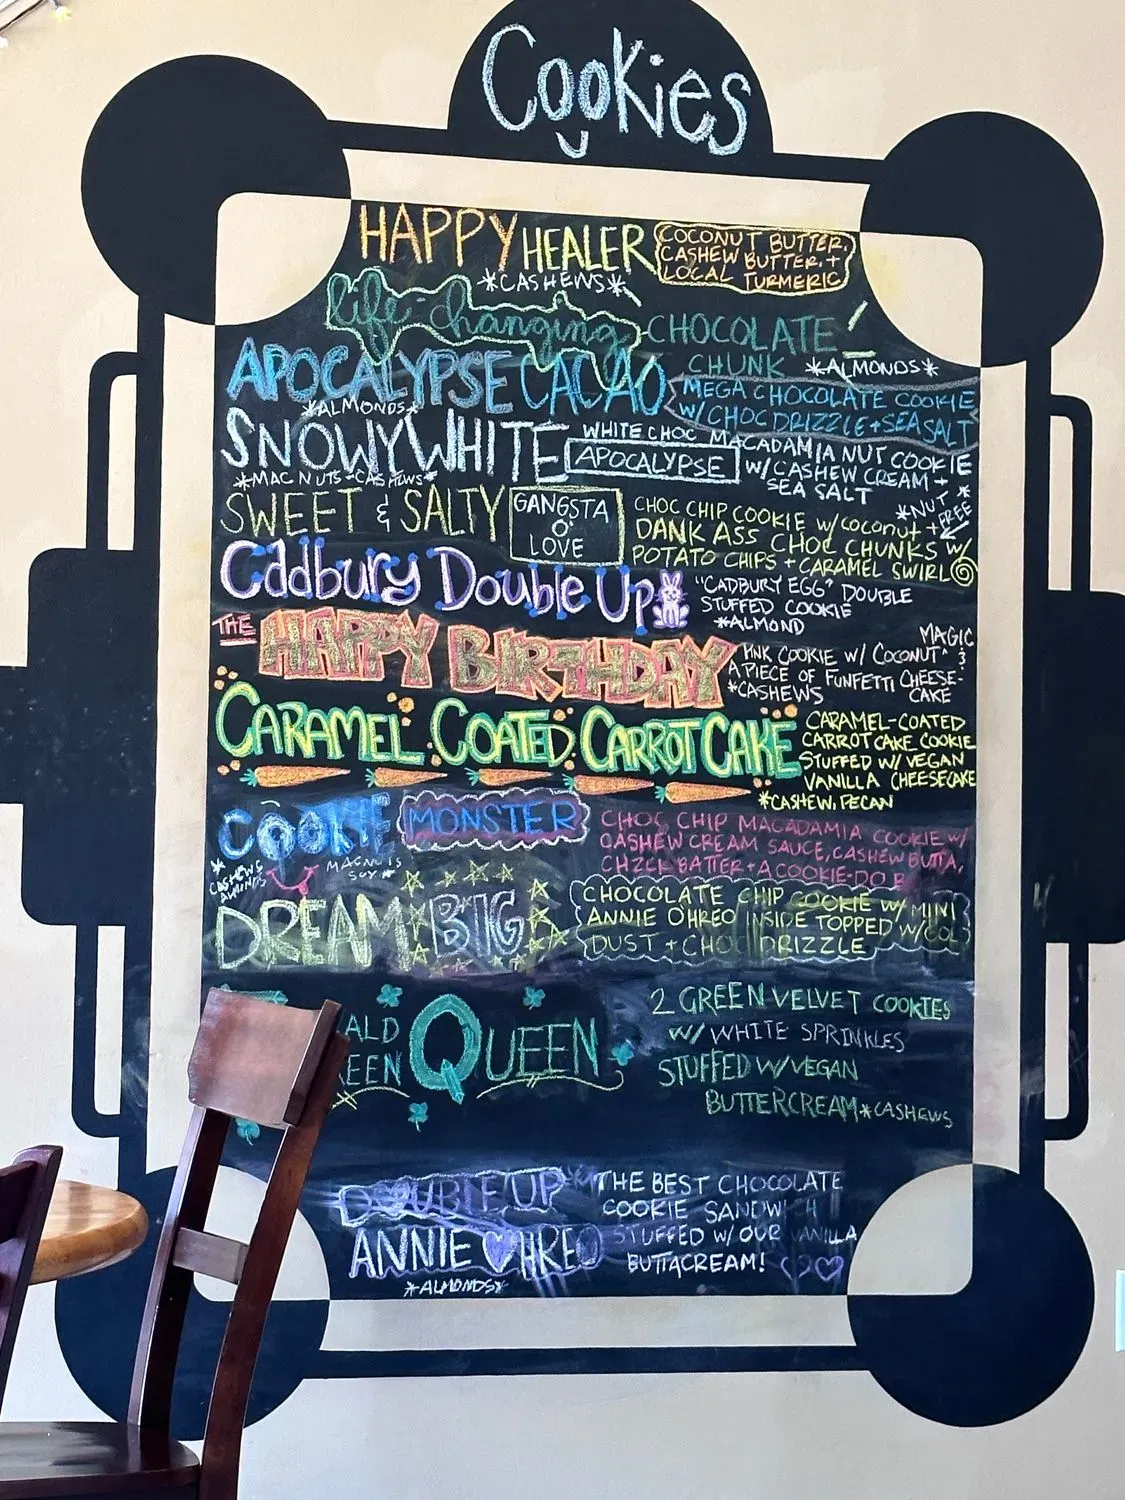 Cookies
HAPPY HEALER
COCONUT BUTTER,
CASHEW BUTTER, +
LOCAL TURMERIC
*CASHEWS*
life changing CHOCOLATE
CHUNK *ALMONDS*
APOCALYPSE CACAO
MEGA CHOCOLATE COOKIE
W/ CHOC DRIZZLE + SEA SALT
*ALMONDS*
SNOWY WHITE
APOCALYPSE
WHITE CHOC MACADAMIA NUT COOKIE
W/ CASHEW CREAM +
SEA SALT
*MAC NUTS + CASHEWS*
SWEET & SALTY
GANGSTA
O'
LOVE
*NUT *
FREE
CHOC CHIP COOKIE w/ coconut +
DANK ASS CHOC CHUNKS w/
POTATO CHIPS + CARAMEL SWIRL
Cadbury Double Up
"CADBURY EGG" DOUBLE
STUFFED COOKIE
*ALMOND
THE HAPPY BIRTHDAY
MAGIC
PINK COOKIE W/ COCONUT &
A PIECE OF FUNFETTI CHEESE-
CAKE
*CASHEWS
CARAMEL COATED CARROT CAKE
CARAMEL-COATED
CARROT CAKE COOKIE
STUFFED W/ VEGAN
VANILLA CHEESECAKE
*CASHEW, PECAN
COOKIE MONSTER
CHOC CHIP MACADAMIA COOKIE w/
CASHEW CREAM SAUCE, CASHEW BUTTA,
CHZCK BATTER + A COOKIE-DO
*CASHEWS
ALMONDS
MACNUTS
SOY*
DREAM BIG
CHOCOLATE CHIP COOKIE W/ MINI
ANNIE O'HREO INSIDE TOPPED W/
DUST + CHOC DRIZZLE
ALD
REEN
QUEEN
2 GREEN VELVET COOKIES
W/ WHITE SPRINKLES
STUFFED W/ VEGAN
BUTTERCREAM *CASHEWS
DOUBLE UP
ANNIE HREO
*ALMONDS*
THE BEST CHOCOLATE
COOKIE SANDWICH
STUFFED W/ OUR VANILLA
BUTTACREAM!